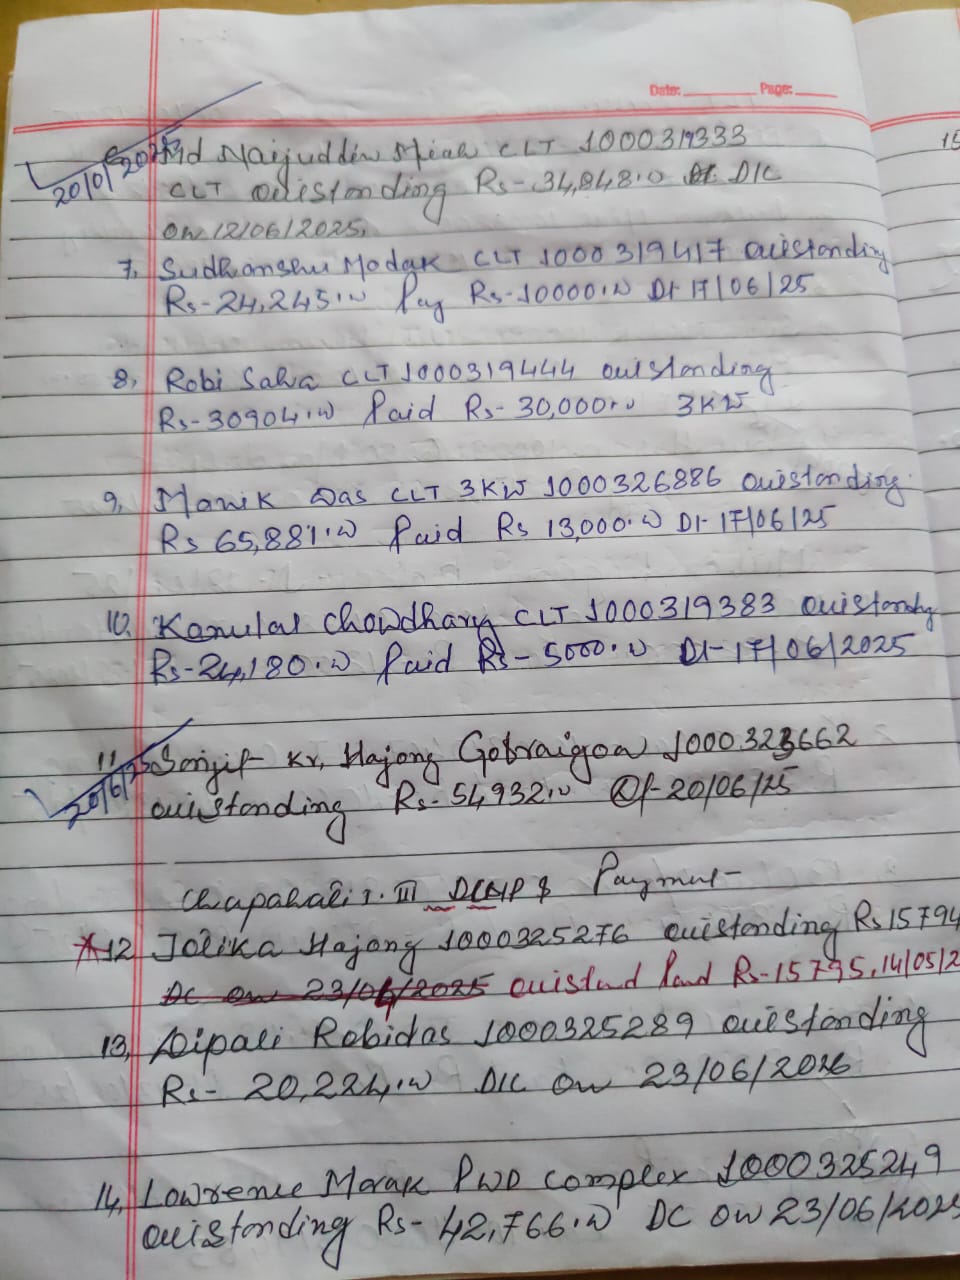 Date: Page:
6. Md Naijuddin Miah CLT 1000319333
20/0/2025
CLT outstanding Rs- 34,848.00 D/C
on 12/06/2025.
7, Sudhanshu Modak CLT 1000319417 outstanding
Rs- 24,245.00 Pay Rs- 10000.00 Dt- 17/06/25
8, Robi Saha CLT 1000319444 outstanding
Rs- 30904.00 Paid Rs- 30,000.00 3KW
9, Manik Das CLT 3KW 1000326886 outstanding
Rs 65,881.00 Paid Rs 13,000.00 Dt- 17/06/25
10. Kanulal Chowdhary CLT 1000319383 outstanding
Rs- 24,180.00 Paid Rs- 5000.00 Dt- 17/06/2025
11. Sanjit Kr, Hajong Gobraigoa 1000323662
20/6/25
outstanding Rs- 54,932.00 20/06/25
Chapahali 1. III Payment-
12 Jolika Hajong 1000325276 outstanding Rs 15794
DC on 23/06/2025 outstand Paid Rs- 15795, 14/05/2
13, Dipali Robidas 1000325289 outstanding
Rs- 20,224.00 D/C on 23/06/2026
14, Lawrence Marak PWD complex 1000325249
outstanding Rs- 42,766.00 DC on 23/06/2025